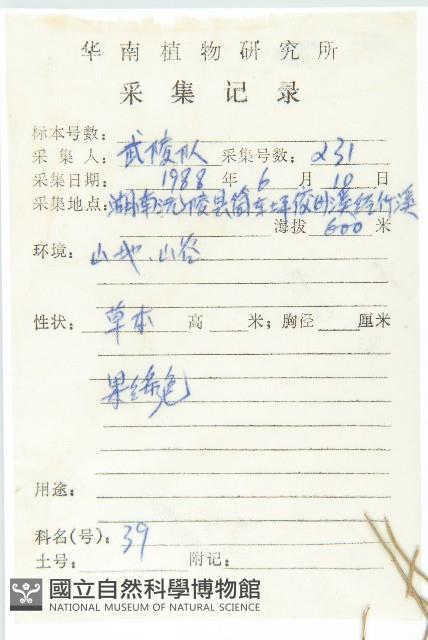 华南植物研究所
采集记录
标本号数:
采集人: 武陵队 采集号数: 231
采集日期: 1988 年 6 月 10 日
采集地点: 湖南沅陵县
海拔 600 米
环境: 山地、山谷
性状: 草本 高 米; 胸径 厘米
果绿色
用途:
科名(号): 39
土号: 附记:
國立自然科學博物館
NATIONAL MUSEUM OF NATURAL SCIENCE